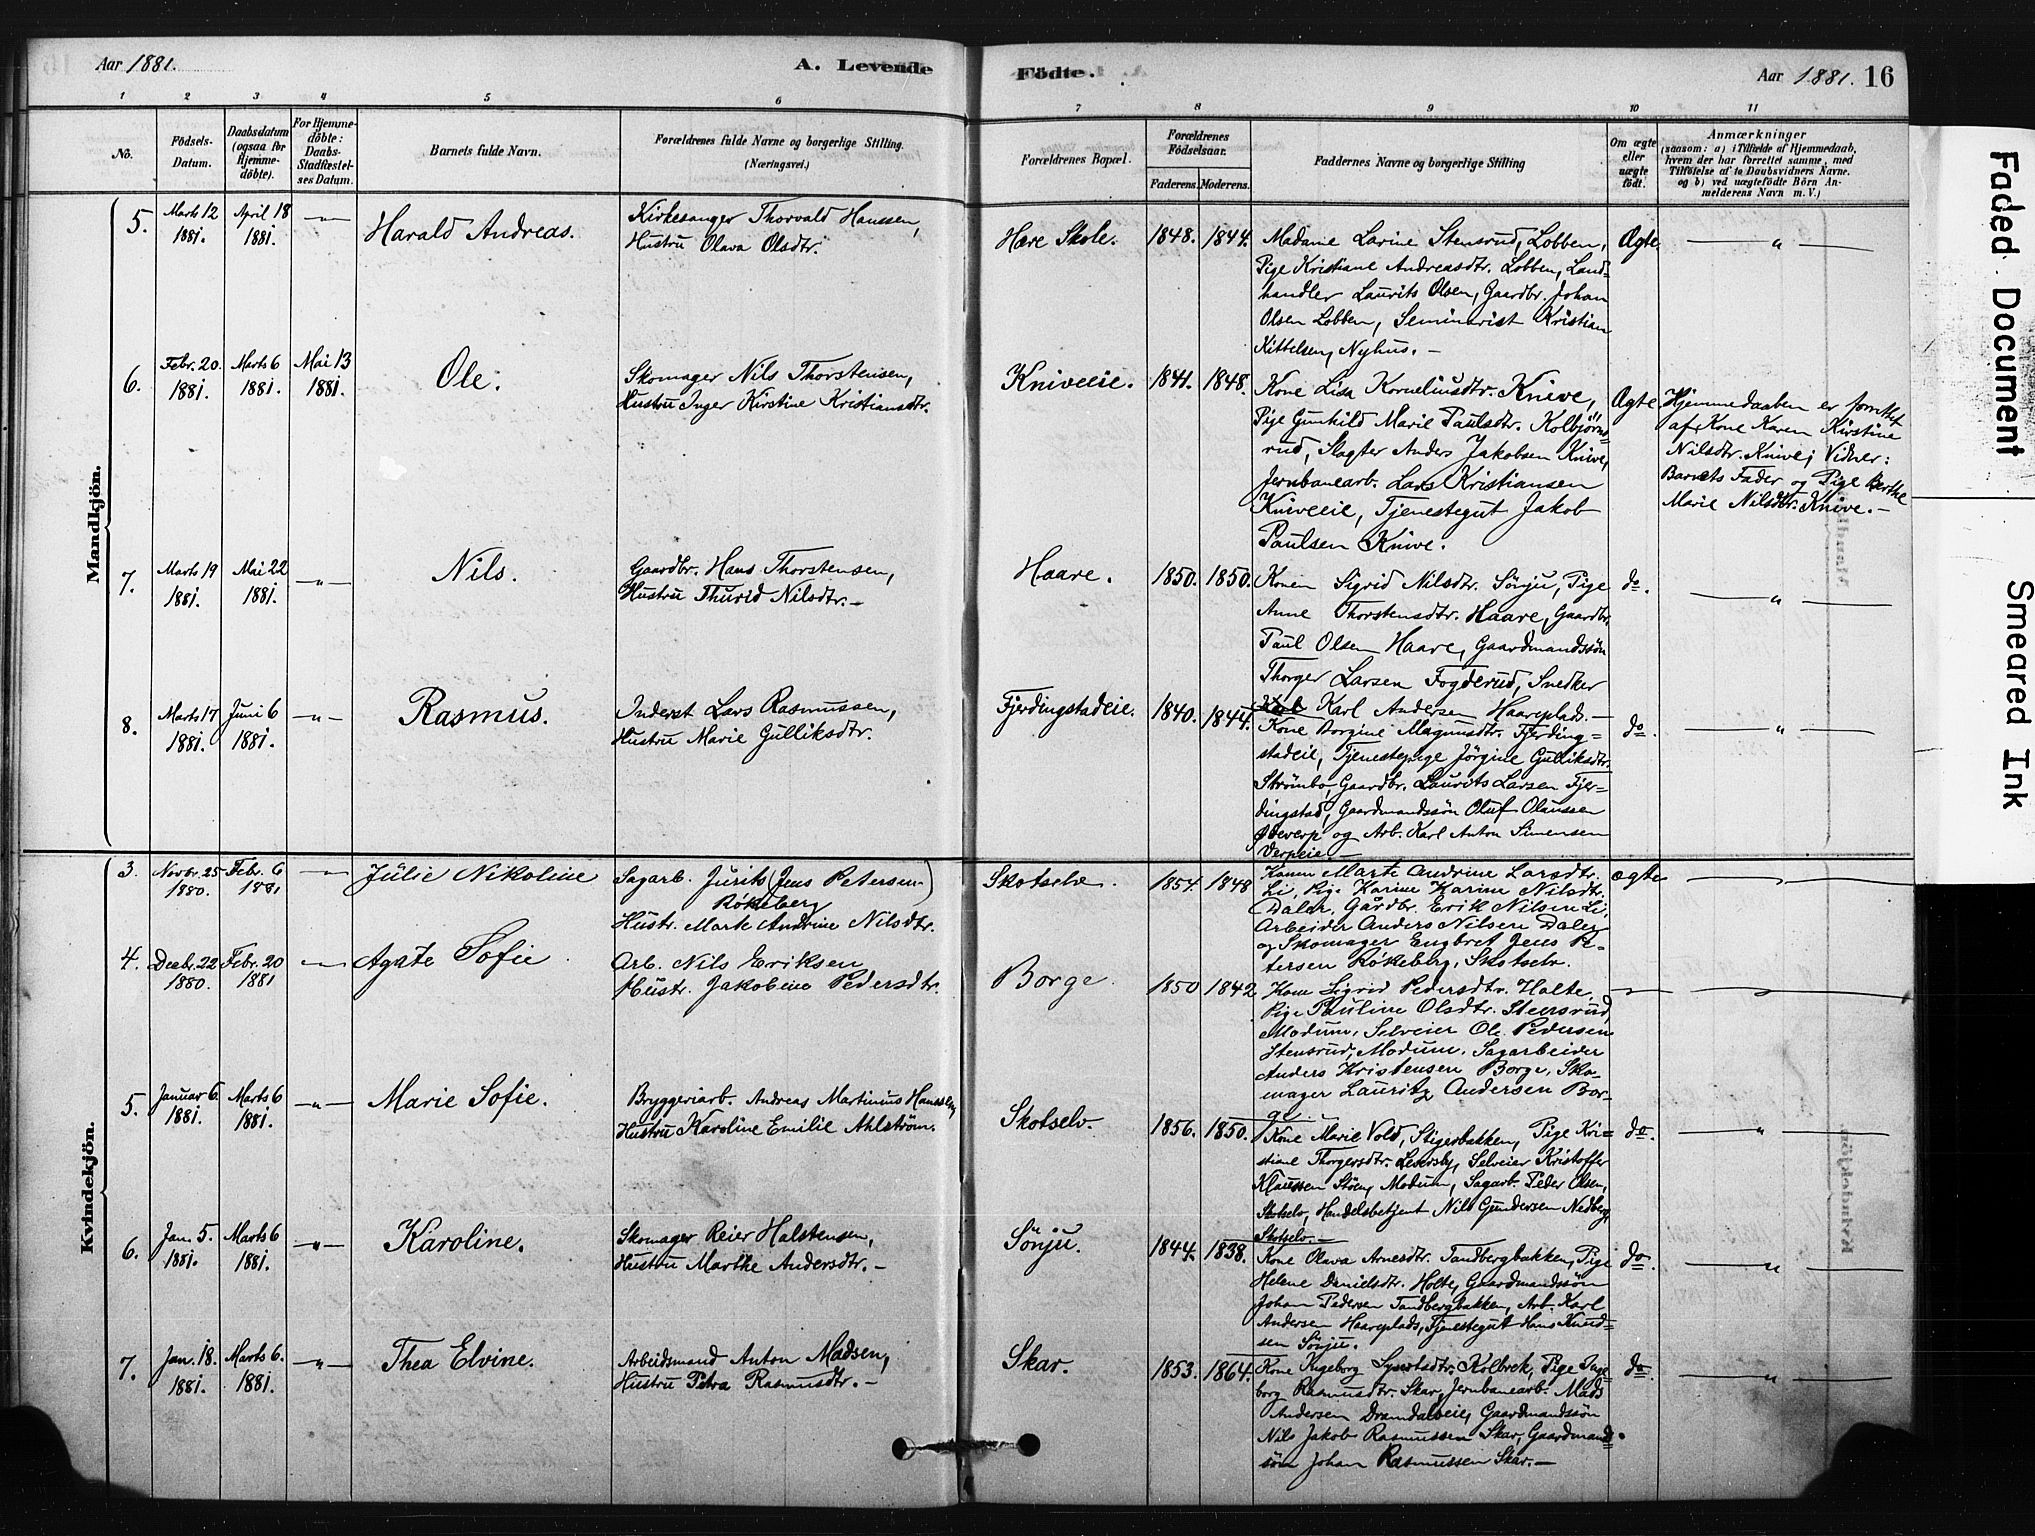 Aar 1881.
A. Levende
Födte.
Aar 1881. 16
1 2 3 4 5 6 7 8 9 10 11
No.
Födsels-Datum.
Daabsdatum (ogsaa for Hjemme-döbte).
For Hjemme-döbte: Daabs-Stadfæstel-ses Datum.
Barnets fulde Navn.
Forældrenes fulde Navne og borgerlige Stilling.
(Næringsvei.)
Forældrenes Bopæl.
Forældrenes Födselsaar.
Faderens. Moderens.
Faddernes Navne og borgerlige Stilling
Om ægte eller uægte födt.
Anmærkninger
(saasom: a) i Tilfælde af Hjemmedaab,
hvem der har forrettet samme, med
Tilföielse af to Daabsvidners Navne.
og b) ved uægtefödte Börn An-
melderens Navn m. V.)
Mandkjön.
5. Marts 12 1881. April 18 1881. —"— Harald Andreas.
Kirkesanger Thorvald Hanssen,
Hustru Olava Olsdtr.
Hære Skole. 1848. 1844.
Madame Lavine Stensrud, Lobben,
Pige Kristiane Andreasdtr. Lobben, Land-
handler Laurits Olsen, Gaardbr. Johan
Olsen Lobben, Seminarist Kristian
Kittelsen, Nyhus. —
Ægte —"—
6. Febr. 20. 1881. Marts 6 1881. Mai 13 1881. Ole.
Skomager Nils Thorstensen,
Hustru Inger Kirstine Kristiansdtr.
Kniveeie. 1841. 1848.
Kone Lisa Korneliusdtr. Knive,
Pige Gunhild Marie Paulsdtr. Kolbjørns-
rud, Slagter Anders Jakobsen Knive,
Jernbanearb. Lars Kristiansen
Kniveeie, Tjenestegut Jakob
Paulsen Knive.
Ægte
Hjemmedaaben er forrettet
af Kone Karen Kirstine
Nilsdtr. Knive; Vidner:
Barnets Fader og Pige Berthe
Marie Nilsdtr. Knive. —
7. Marts 19 1881. Mai 22 1881. —"— Nils.
Gaardbr. Hans Thorstensen,
Hustru Thurid Nilsdtr. —
Haare. 1850. 1850.
Konen Sigrid Nilsdtr. Sönju, Pige
Anne Thorstensdtr. Haare, Gaardbr.
Paul Olsen Haare, Gaardmandssön
Thorger Larsen Fogderud, Snedker
Karl Andersen Haareplads. —
do. —"—
8. Marts 17 1881. Juni 6 1881. —"— Rasmus.
Inderst Lars Rasmussen,
Hustru Marie Gulliksdtr.
Fjerdingstadeie. 1840. 1844.
Kone Borgine Magnusdtr. Fjerding=
stadeie, Tjenestepige Jörgine Gulliksdtr.
Strömbo, Gaardbr. Laurits Larsen Fjer=
dingstad, Gaardmandssön Oluf Olaussen
Ødeverp og Arb. Karl Anton Simensen
Verpeie. —
do. —"—
Kvindekjön.
3. Novbr. 25 1880. Febr. 6 1881 —"— Julie Nikoline
Sagarb. Jurits (Jens Petersen)
Rökeberg
Hustr. Marte Andrine Nilsdtr.
Skotselv. 1854. 1848
Konen Marte Andrine Larsdtr.
Li, Pige Karine Karine Nilsdtr.
Daler, Gårdbr. Erik Nilsen Li,
Arbeider Anders Nilsen Daler
og Skomager Engbret Jens Pe-
tersen Rökeberg, Skotselv.
ægte
4. Decbr. 22 1880. Febr. 20 1881 Agate Sofie
Arb. Nils Eriksen
Hustr. Jakobine Pedersdtr.
Borge. 1850 1842
Kone Sigrid Pedersdtr. Holte,
Pige Pauline Olsdtr. Stensrud,
Modum, Selveier Ole Pedersen
Stensrud, Modum. Sagarbeider
Anders Kristensen Borge, Sko-
mager Lauritz Andersen Bor-
ge.
5. Januar 6. 1881. Marts 6 1881. —"— Marie Sofie.
Bryggeriarb. Andreas Martinius
Hustru Karoline Emilie Ahlström.
Skotselv. 1856. 1850.
Kone Marie Vold, Stigerbakken, Pige Kri=
stiane Thorgersdtr. Leversby, Selveier Kristoffer
Klaussen Stöen, Modum, Sagarb. Peder Olsen,
Skotselv, Handelsbetjent Nils Gundersen Nedberg,
Skotselv. —
do. —"—
6. Jan. 5. 1881. Marts 6 1881. —"— Karoline.
Skomager Reier Halstensen,
Hustru Marthe Andersdtr. —
Sönju. 1844. 1838.
Kone Olava Arnesdtr. Tandbergbakken, Pige
Helene Danielsdtr. Holte, Gaardmandssön
Johan Pedersen Tandbergbakken, Arb. Karl
Andersen Haareplads, Tjenestegut Hans Knud-
sen Sönju.
do. —"—
7. Jan. 18. 1881. Marts 6. 1881. —"— Thea Elvine.
Arbeidsmand Anton Madsen,
Hustru Petra Rasmusdtr. —
Skar. 1853. 1864.
Kone Ingeborg Syvertsdtr. Kolbrek, Pige Inge=
borg Rasmusdtr. Skar, Jernbanearb. Mads
Andersen Dramdalseie, Gaardmandssön
Nils Jakob Rasmussen Skar, Gaardmands=
sön Johan Rasmussen Skar. —
do. —"—
Faded Document
Smeared Ink